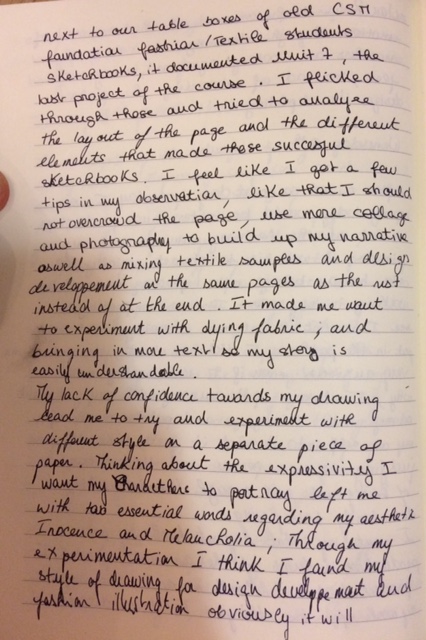 next to our table boxes of old CSM
foundation fashion/Textile students
sketchbooks, it documented Unit 7, the
last project of the course. I flicked
through those and tried to analyse
the layout of the page and the different
elements that made these succesful
sketchbooks. I feel like I got a few
tips in my observation, like that I should
not overcrowd the page, use more collage
and photography to build up my narrative
aswell as mixing textile samples and design
developpement on the same pages as the rest
instead of at the end. It made me want
to experiment with dying fabric, and
bringing in more text so my story is
easily understandable.
My lack of confidence towards my drawing
lead me to try and experiment with
different style on a separate piece of
paper. Thinking about the expressivity I
want my to portray left me
with two essential words regarding my aesthetic
Inocence and Melancholia; Through my
experimentation I think I found my
style of drawing for design developpement and
fashion illustration obviously it will